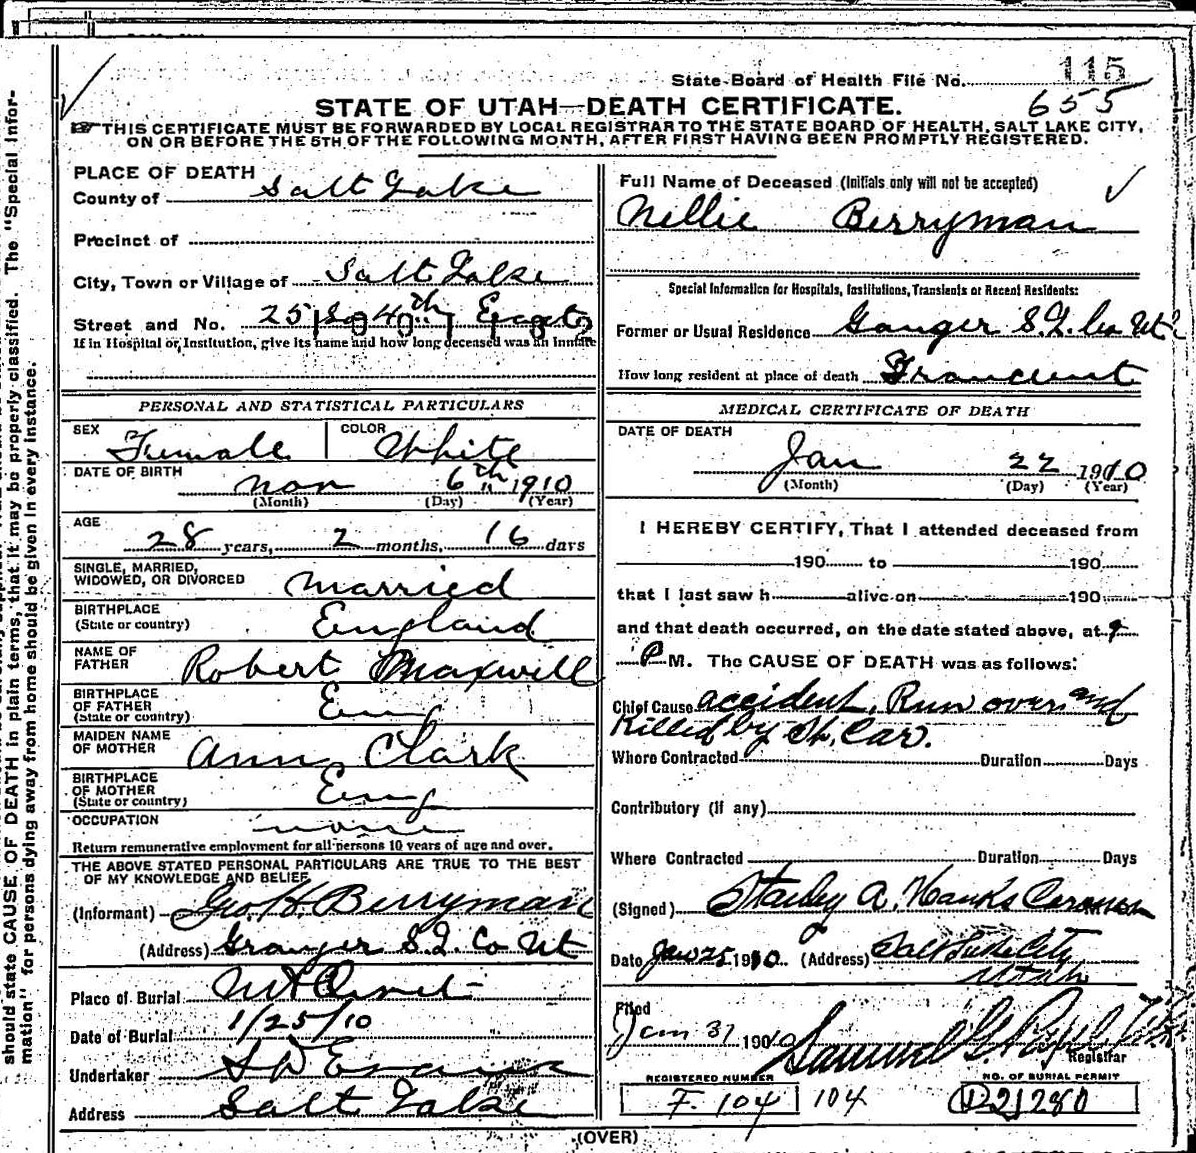 State Board of Health File No. 115
655
STATE OF UTAH—DEATH CERTIFICATE.
THIS CERTIFICATE MUST BE FORWARDED BY LOCAL REGISTRAR TO THE STATE BOARD OF HEALTH, SALT LAKE CITY,
ON OR BEFORE THE 5TH OF THE FOLLOWING MONTH, AFTER FIRST HAVING BEEN PROMPTLY REGISTERED.
should state CAUSE OF DEATH in plain terms, that it may be properly classified. The "Special Infor-
mation" for persons dying away from home should be given in every instance.
PLACE OF DEATH
County of Salt Lake
Precinct of
City, Town or Village of Salt Lake
Street and No. 251 So 4th East
If in Hospital or Institution, give its name and how long deceased was an inmate
PERSONAL AND STATISTICAL PARTICULARS
SEX Female COLOR White
DATE OF BIRTH Nov 6th 1910
(Month) (Day) (Year)
AGE
28 years, 2 months, 16 days
SINGLE, MARRIED,
WIDOWED, OR DIVORCED married
BIRTHPLACE
(State or country) England
NAME OF
FATHER Robert Maxwell
BIRTHPLACE
OF FATHER
(State or country) Eng
MAIDEN NAME
OF MOTHER Ann Clark
BIRTHPLACE
OF MOTHER
(State or country) Eng
OCCUPATION none
Return remunerative employment for all persons 10 years of age and over.
THE ABOVE STATED PERSONAL PARTICULARS ARE TRUE TO THE BEST
OF MY KNOWLEDGE AND BELIEF
(Informant) Geo. H. Berryman
(Address) Granger S.L. Co Ut
Place of Burial Mt Olivet
Date of Burial 1/25/10
Undertaker S D Evans
Address Salt Lake
Full Name of Deceased (Initials only will not be accepted)
Nellie Berryman
Special Information for Hospitals, Institutions, Transients or Recent Residents:
Former or Usual Residence Granger S.L. Co Ut
How long resident at place of death
MEDICAL CERTIFICATE OF DEATH
DATE OF DEATH
Jan 22 1910
(Month) (Day) (Year)
I HEREBY CERTIFY, That I attended deceased from
190 to 190
that I last saw h alive on 190
and that death occurred, on the date stated above, at 9
P M. The CAUSE OF DEATH was as follows:
Chief Cause accident, Run over and
Killed by St. Car.
Where Contracted Duration Days
Contributory (if any)
Where Contracted Duration Days
(Signed) Stanley A. Hanks Coroner
Date Jan 25 1910 (Address) Salt Lake City
Utah
Filed
Jan 31 190 Samuel G
Registrar
REGISTERED NUMBER NO. OF BURIAL PERMIT
F. 104 104 D21280
(OVER)